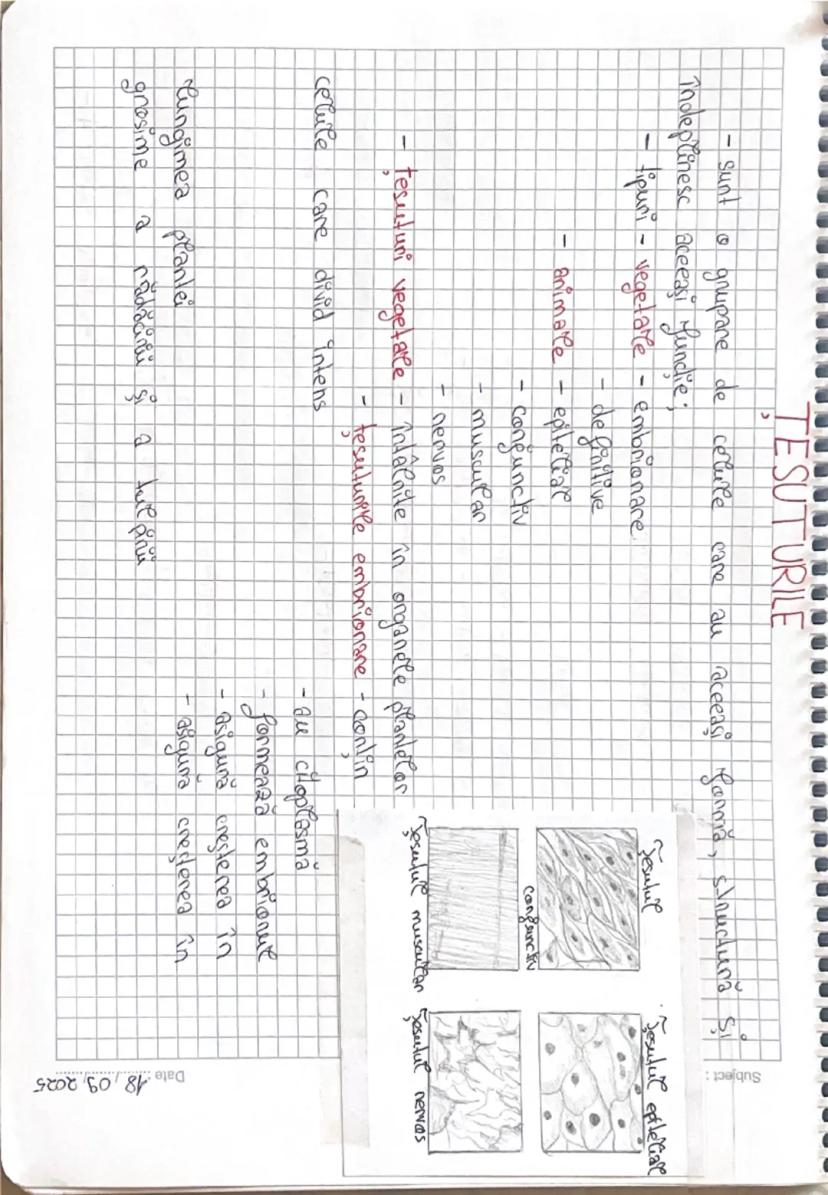 ȚESUTURILE
- sunt o grupare de celule care au aceeași formă, structură și
îndeplinesc aceeași funcție;
- tipuri - vegetale - embrionare
- definitive
- animale - epitelial
- conjunctiv
- muscular
- nervos
- țesuturi vegetale - întâlnite în organele plantelor
- țesuturile embrionare - conțin
celule care divid intens
- au citoplasmă
- formează embrionul
- asigură creșterea în
lungimea plantei
- asigură creșterea în
grosime a rădăcinii și a tulpinii
Țesutul
conjunctiv
Țesutul epitelial
Țesutul muscular
Țesutul nervos
Subject:
Date: 18/09/2025